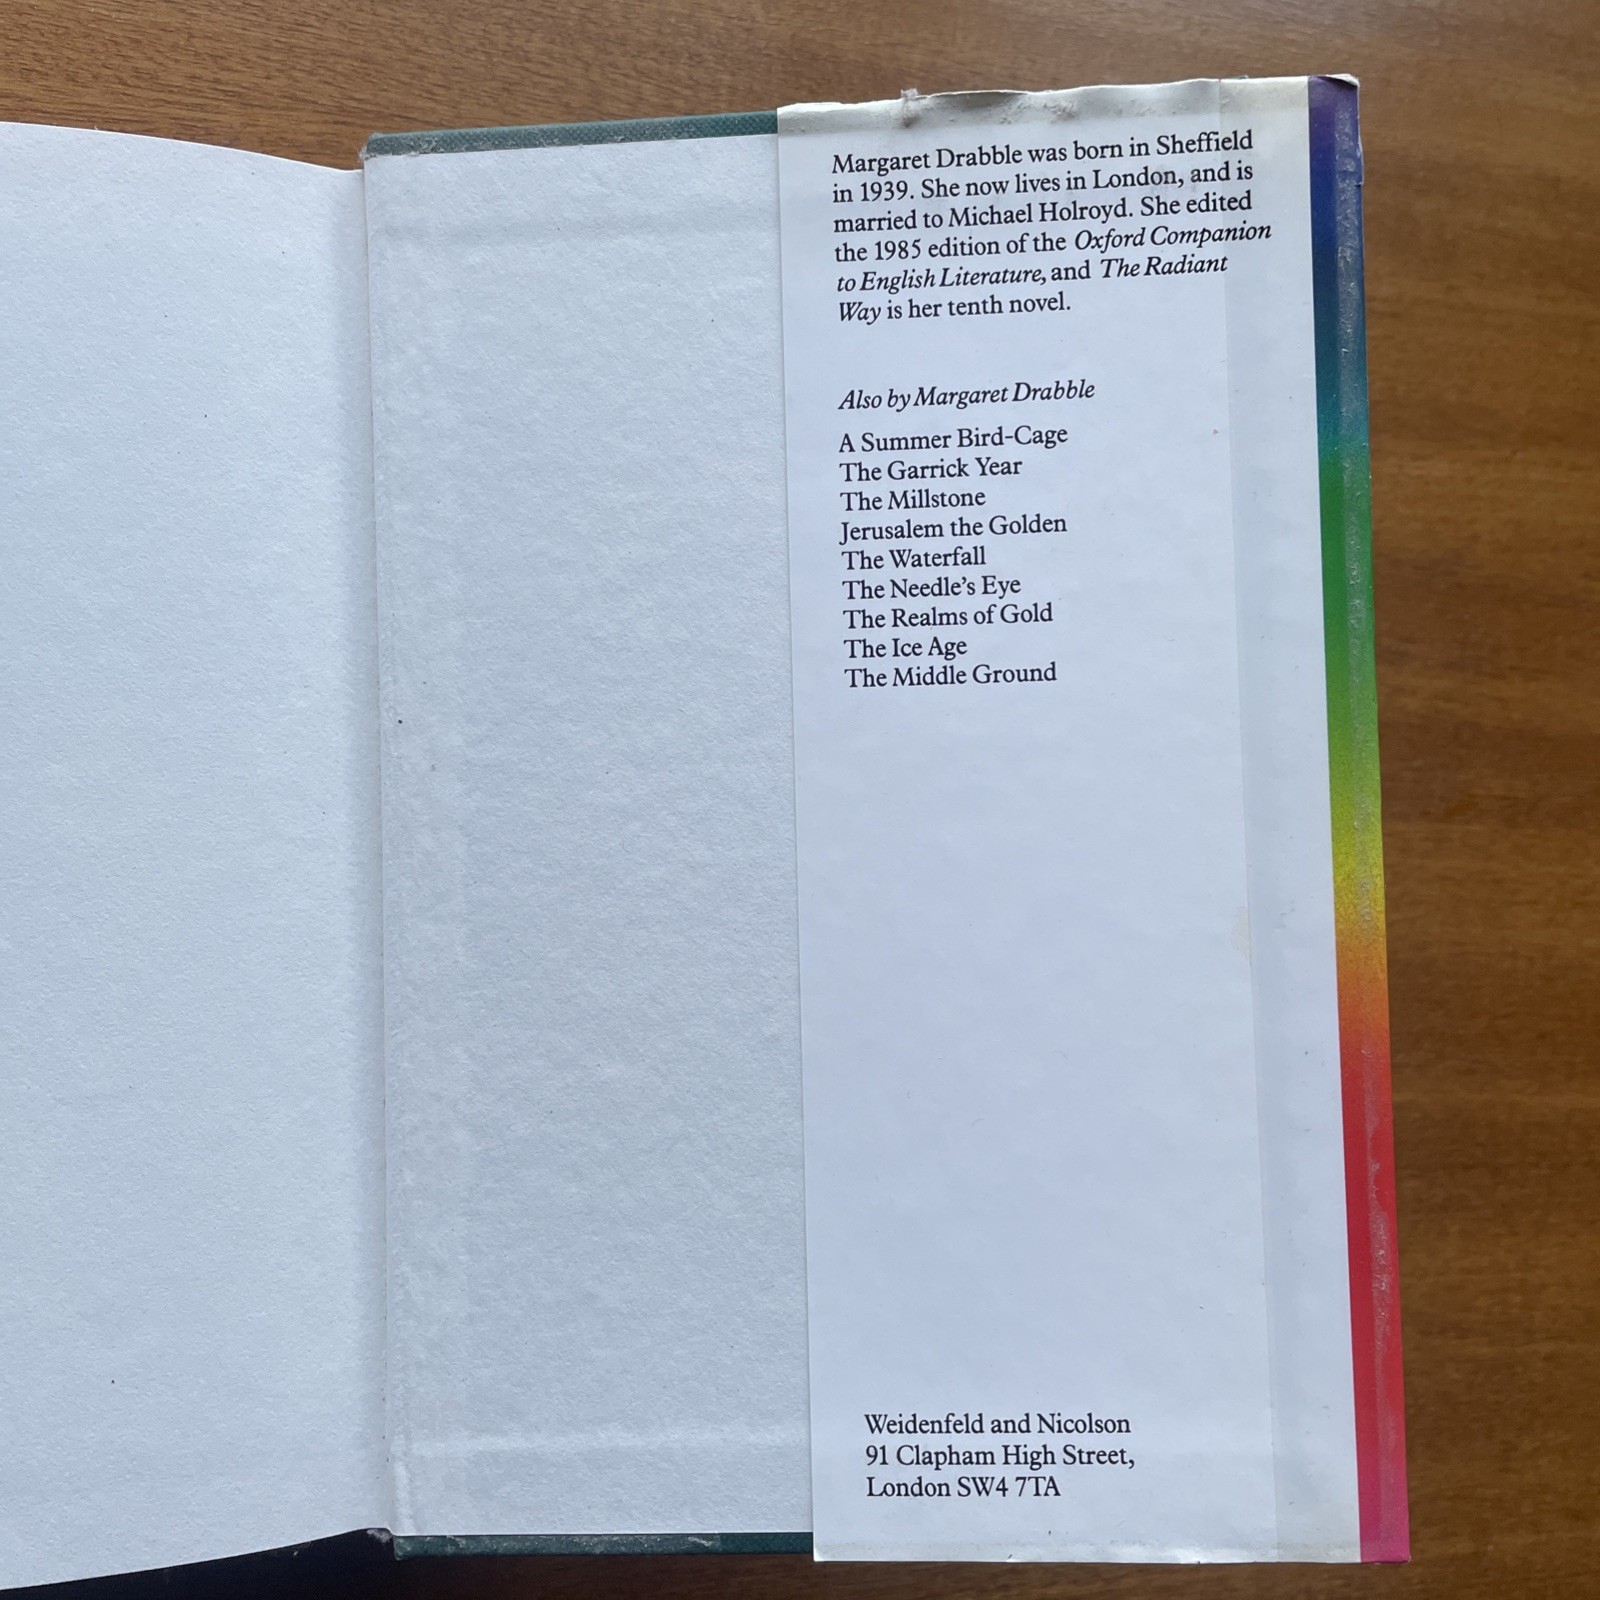 Margaret Drabble was born in Sheffield
in 1939. She now lives in London, and is
married to Michael Holroyd. She edited
the 1985 edition of the Oxford Companion
to English Literature, and The Radiant
Way is her tenth novel.
Also by Margaret Drabble
A Summer Bird-Cage
The Garrick Year
The Millstone
Jerusalem the Golden
The Waterfall
The Needle’s Eye
The Realms of Gold
The Ice Age
The Middle Ground
Weidenfeld and Nicolson
91 Clapham High Street,
London SW4 7TA